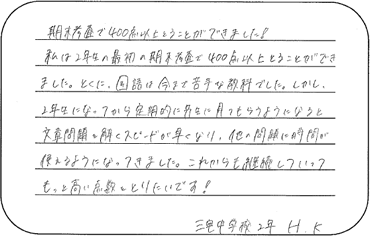 期末考査で400点以上とることができました!
私は2年生の最初の期末考査で400点以上とることができ
ました。とくに、国語は今まで苦手な教科でした。しかし、
2年生になってから定期的に先生に見てもらうようになると
文章問題を解くスピードが早くなり、他の問題に時間が
使えるようになってきました。これからも継続していって
もっと高い点数をとりたいです!
中学校2年 H.K